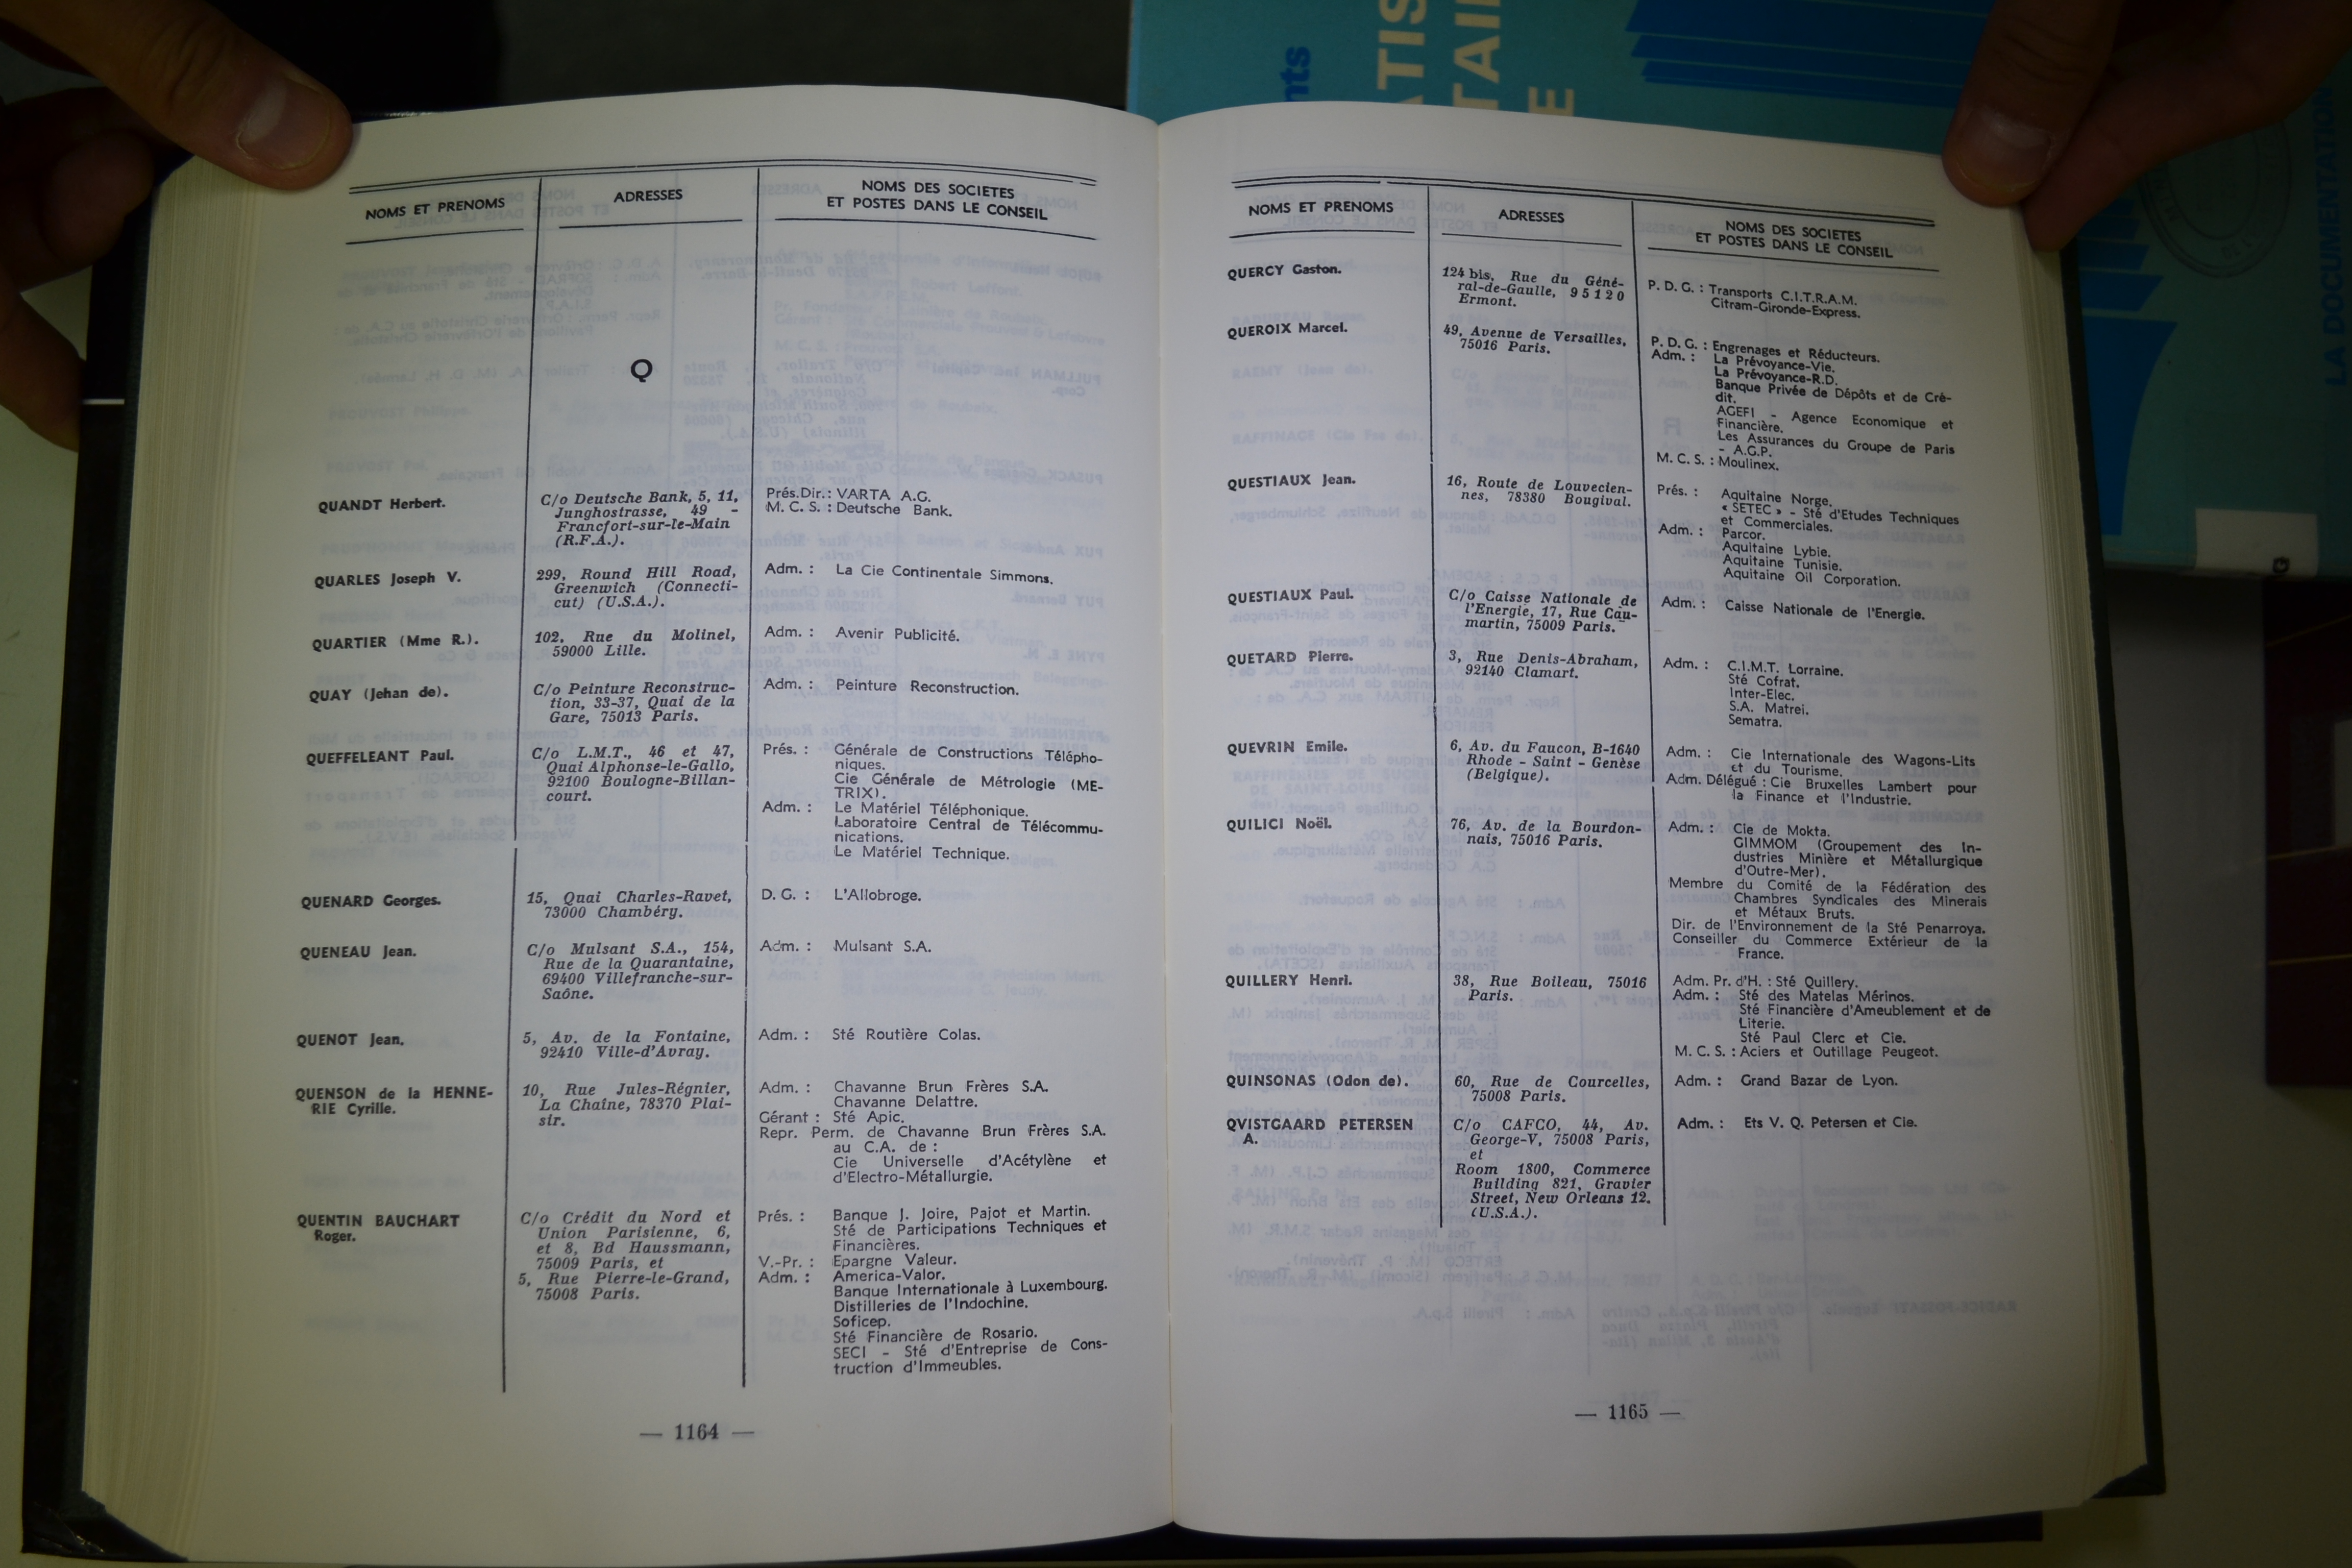 NOMS ET PRENOMS
ADRESSES
NOMS DES SOCIETES
ET POSTES DANS LE CONSEIL
Q
QUANDT Herbert.
C/o Deutsche Bank, 5, 11,
Junghostrasse, 49 -
Francfort-sur-le-Main
(R.F.A.).
Prés.Dir.: VARTA A.G.
M. C. S. : Deutsche Bank.
QUARLES Joseph V.
299, Round Hill Road,
Greenwich (Connecti-
cut) (U.S.A.).
Adm. : La Cie Continentale Simmons.
QUARTIER (Mme R.).
102, Rue du Molinel,
59000 Lille.
Adm. : Avenir Publicité.
QUAY (Jehan de).
C/o Peinture Reconstruc-
tion, 33-37, Quai de la
Gare, 75013 Paris.
Adm. : Peinture Reconstruction.
QUEFFELEANT Paul.
C/o L.M.T., 46 et 47,
Quai Alphonse-le-Gallo,
92100 Boulogne-Billan-
court.
Prés. : Générale de Constructions Télépho-
niques.
Cie Générale de Métrologie (ME-
TRIX).
Adm. : Le Matériel Téléphonique.
Laboratoire Central de Télécommu-
nications.
Le Matériel Technique.
QUENARD Georges.
15, Quai Charles-Ravet,
73000 Chambéry.
D. G. : L'Allobroge.
QUENEAU Jean.
C/o Mulsant S.A., 154,
Rue de la Quarantaine,
69400 Villefranche-sur-
Saône.
Adm. : Mulsant S.A.
QUENOT Jean.
5, Av. de la Fontaine,
92410 Ville-d'Avray.
Adm. : Sté Routière Colas.
QUENSON de la HENNE-
RIE Cyrille.
10, Rue Jules-Régnier,
La Chaîne, 78370 Plai-
sir.
Adm. : Chavanne Brun Frères S.A.
Chavanne Delattre.
Gérant : Sté Apic.
Repr. Perm. de Chavanne Brun Frères S.A.
au C.A. de :
Cie Universelle d'Acétylène et
d'Electro-Métallurgie.
QUENTIN BAUCHART
Roger.
C/o Crédit du Nord et
Union Parisienne, 6,
et 8, Bd Haussmann,
75009 Paris, et
5, Rue Pierre-le-Grand,
75008 Paris.
Prés. : Banque J. Joire, Pajot et Martin.
Sté de Participations Techniques et
Financières.
V.-Pr. : Epargne Valeur.
Adm. : America-Valor.
Banque Internationale à Luxembourg.
Distilleries de l'Indochine.
Soficep.
Sté Financière de Rosario.
SECI - Sté d'Entreprise de Cons-
truction d'Immeubles.
— 1164 —
NOMS ET PRENOMS
ADRESSES
NOMS DES SOCIETES
ET POSTES DANS LE CONSEIL
QUERCY Gaston.
124 bis, Rue du Géné-
ral-de-Gaulle, 95120
Ermont.
P. D. G. : Transports C.I.T.R.A.M.
Citram-Gironde-Express.
QUEROIX Marcel.
49, Avenue de Versailles,
75016 Paris.
P. D. G. : Engrenages et Réducteurs.
Adm. : La Prévoyance-Vie.
La Prévoyance-R.D.
Banque Privée de Dépôts et de Cré-
dit.
AGEFI - Agence Economique et
Financière.
Les Assurances du Groupe de Paris
- A.G.P.
M. C. S. : Moulinex.
QUESTIAUX Jean.
16, Route de Louvecien-
nes, 78380 Bougival.
Prés. : Aquitaine Norge.
« SETEC » - Sté d'Etudes Techniques
et Commerciales.
Adm. : Parcor.
Aquitaine Lybie.
Aquitaine Tunisie.
Aquitaine Oil Corporation.
QUESTIAUX Paul.
C/o Caisse Nationale de
l'Energie, 17, Rue Cau-
martin, 75009 Paris.
Adm. : Caisse Nationale de l'Energie.
QUETARD Pierre.
3, Rue Denis-Abraham,
92140 Clamart.
Adm. : C.I.M.T. Lorraine.
Sté Cofrat.
Inter-Elec.
S.A. Matrei.
Sematra.
QUEVRIN Emile.
6, Av. du Faucon, B-1640
Rhode - Saint - Genèse
(Belgique).
Adm. : Cie Internationale des Wagons-Lits
et du Tourisme.
Adm. Délégué : Cie Bruxelles Lambert pour
la Finance et l'Industrie.
QUILICI Noël.
76, Av. de la Bourdon-
nais, 75016 Paris.
Adm. : Cie de Mokta.
GIMMOM (Groupement des In-
dustries Minière et Métallurgique
d'Outre-Mer).
Membre du Comité de la Fédération des
Chambres Syndicales des Minerais
et Métaux Bruts.
Dir. de l'Environnement de la Sté Penarroya.
Conseiller du Commerce Extérieur de la
France.
QUILLERY Henri.
38, Rue Boileau, 75016
Paris.
Adm. Pr. d'H. : Sté Quillery.
Adm. : Sté des Matelas Mérinos.
Sté Financière d'Ameublement et de
Literie.
Sté Paul Clerc et Cie.
M. C. S. : Aciers et Outillage Peugeot.
QUINSONAS (Odon de).
60, Rue de Courcelles,
75008 Paris.
Adm. : Grand Bazar de Lyon.
QVISTGAARD PETERSEN
A.
C/o CAFCO, 44, Av.
George-V, 75008 Paris,
et
Room 1800, Commerce
Building 821, Gravier
Street, New Orleans 12.
(U.S.A.).
Adm. : Ets V. Q. Petersen et Cie.
— 1165 —
LA DOCUMENTATION